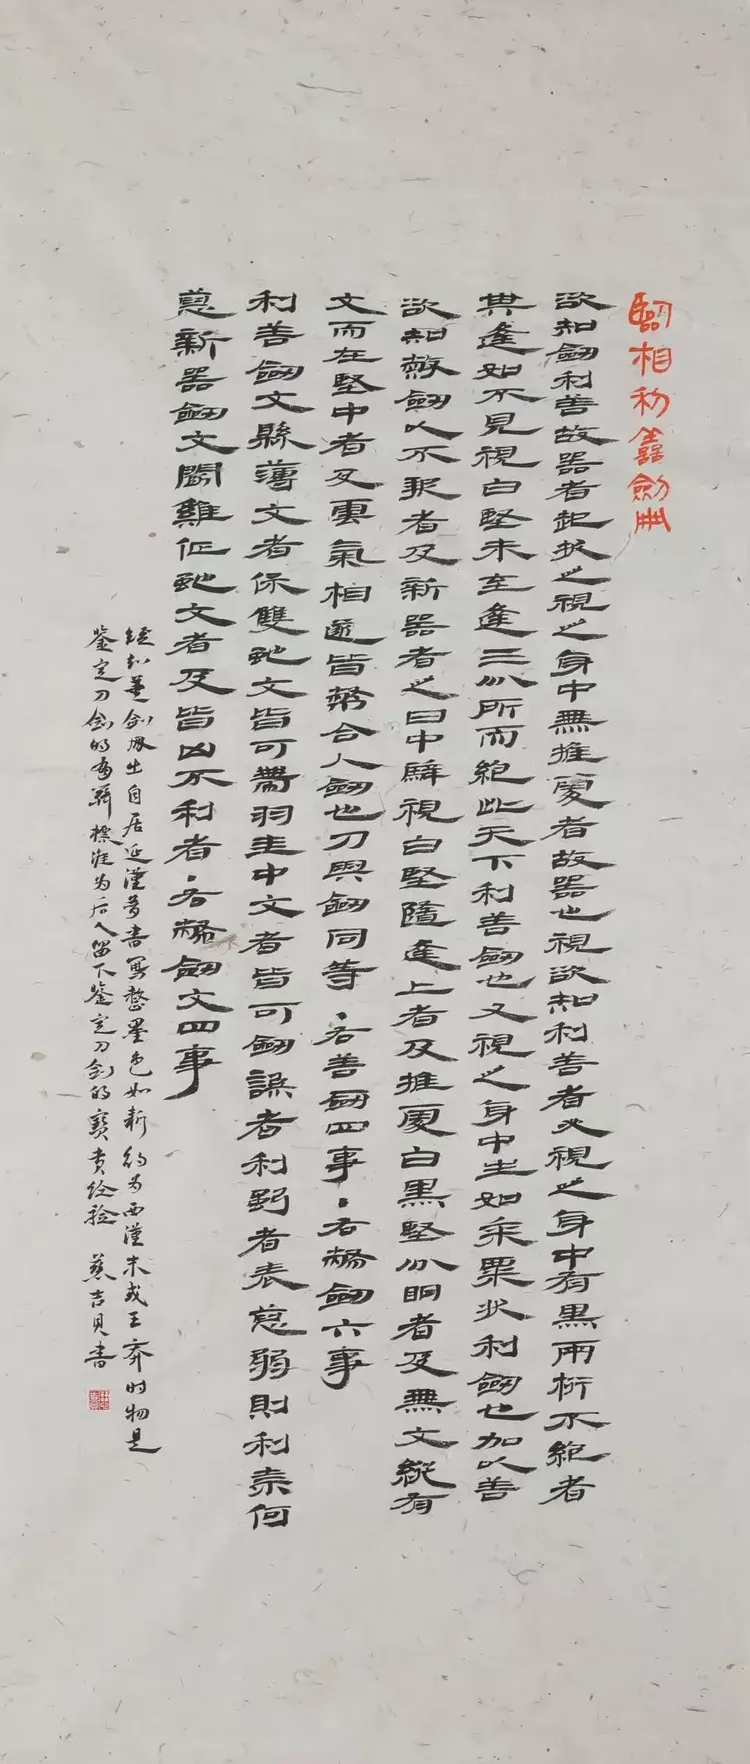 臨相利善劍冊
欲知劍利善故器者起拔之視之身中無推處者故器也視欲知利善者必視之身中有黑兩桁不絕者
其逢如不見視白堅未至逢三分所而絕此天下利善劍也又視之身中生如黍粟狀利劍也加以善
欲知幣劍以不報者及新器者之日中騂視白堅隨逢上者及推處白黑堅分明者及無文縱有
文而在堅中者及雲氣相遂皆幣合人劍也刀與劍同等·右善劍四事·右幣劍六事
利善劍文縣薄文者保雙蛇文皆可帶羽圭中文者皆可劍謠者利劍者表恙弱則利奈何
恙新器劍文鬭雞佂蛇文者及皆凶不利者·右幣劍文四事
相利善劍冊出自居延漢簡書寫整墨色如新約為西漢末或王莽时物是
鉴定刀劍的標准为后人留下鉴定刀劍的寶贵经验 吉貝書